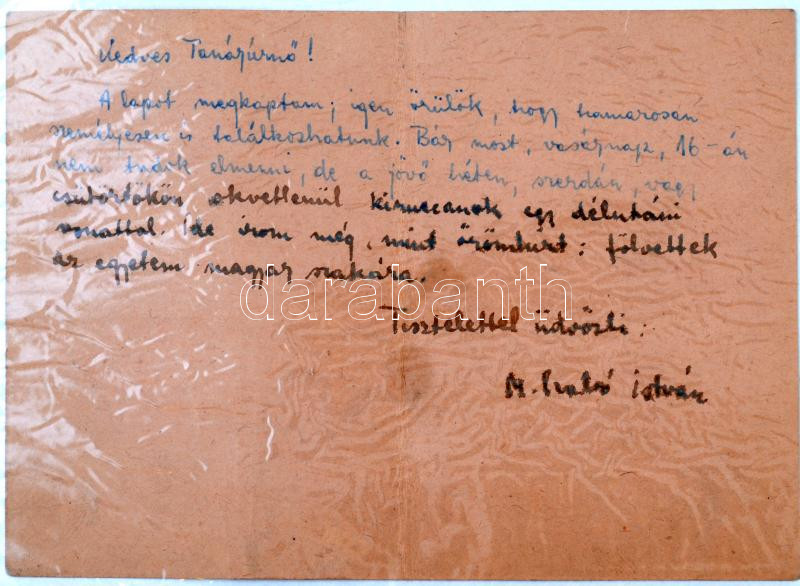 Kedves Tanárúrnő!
A lapot megkaptam; igen örülök, hogy hamarosan
személyesen is találkozhatunk. Bár most, vasárnap, 16-án
nem tudok elmenni, de a jövő héten, szerdán, vagy
csütörtökön okvetlenül kiruccanok egy délutáni
vonattal. Ide írom még, mint örömhírt: fölvettek
az egyetem magyar szakára.
darabanth.com
Tisztelettel üdvözli:
M. Szabó István